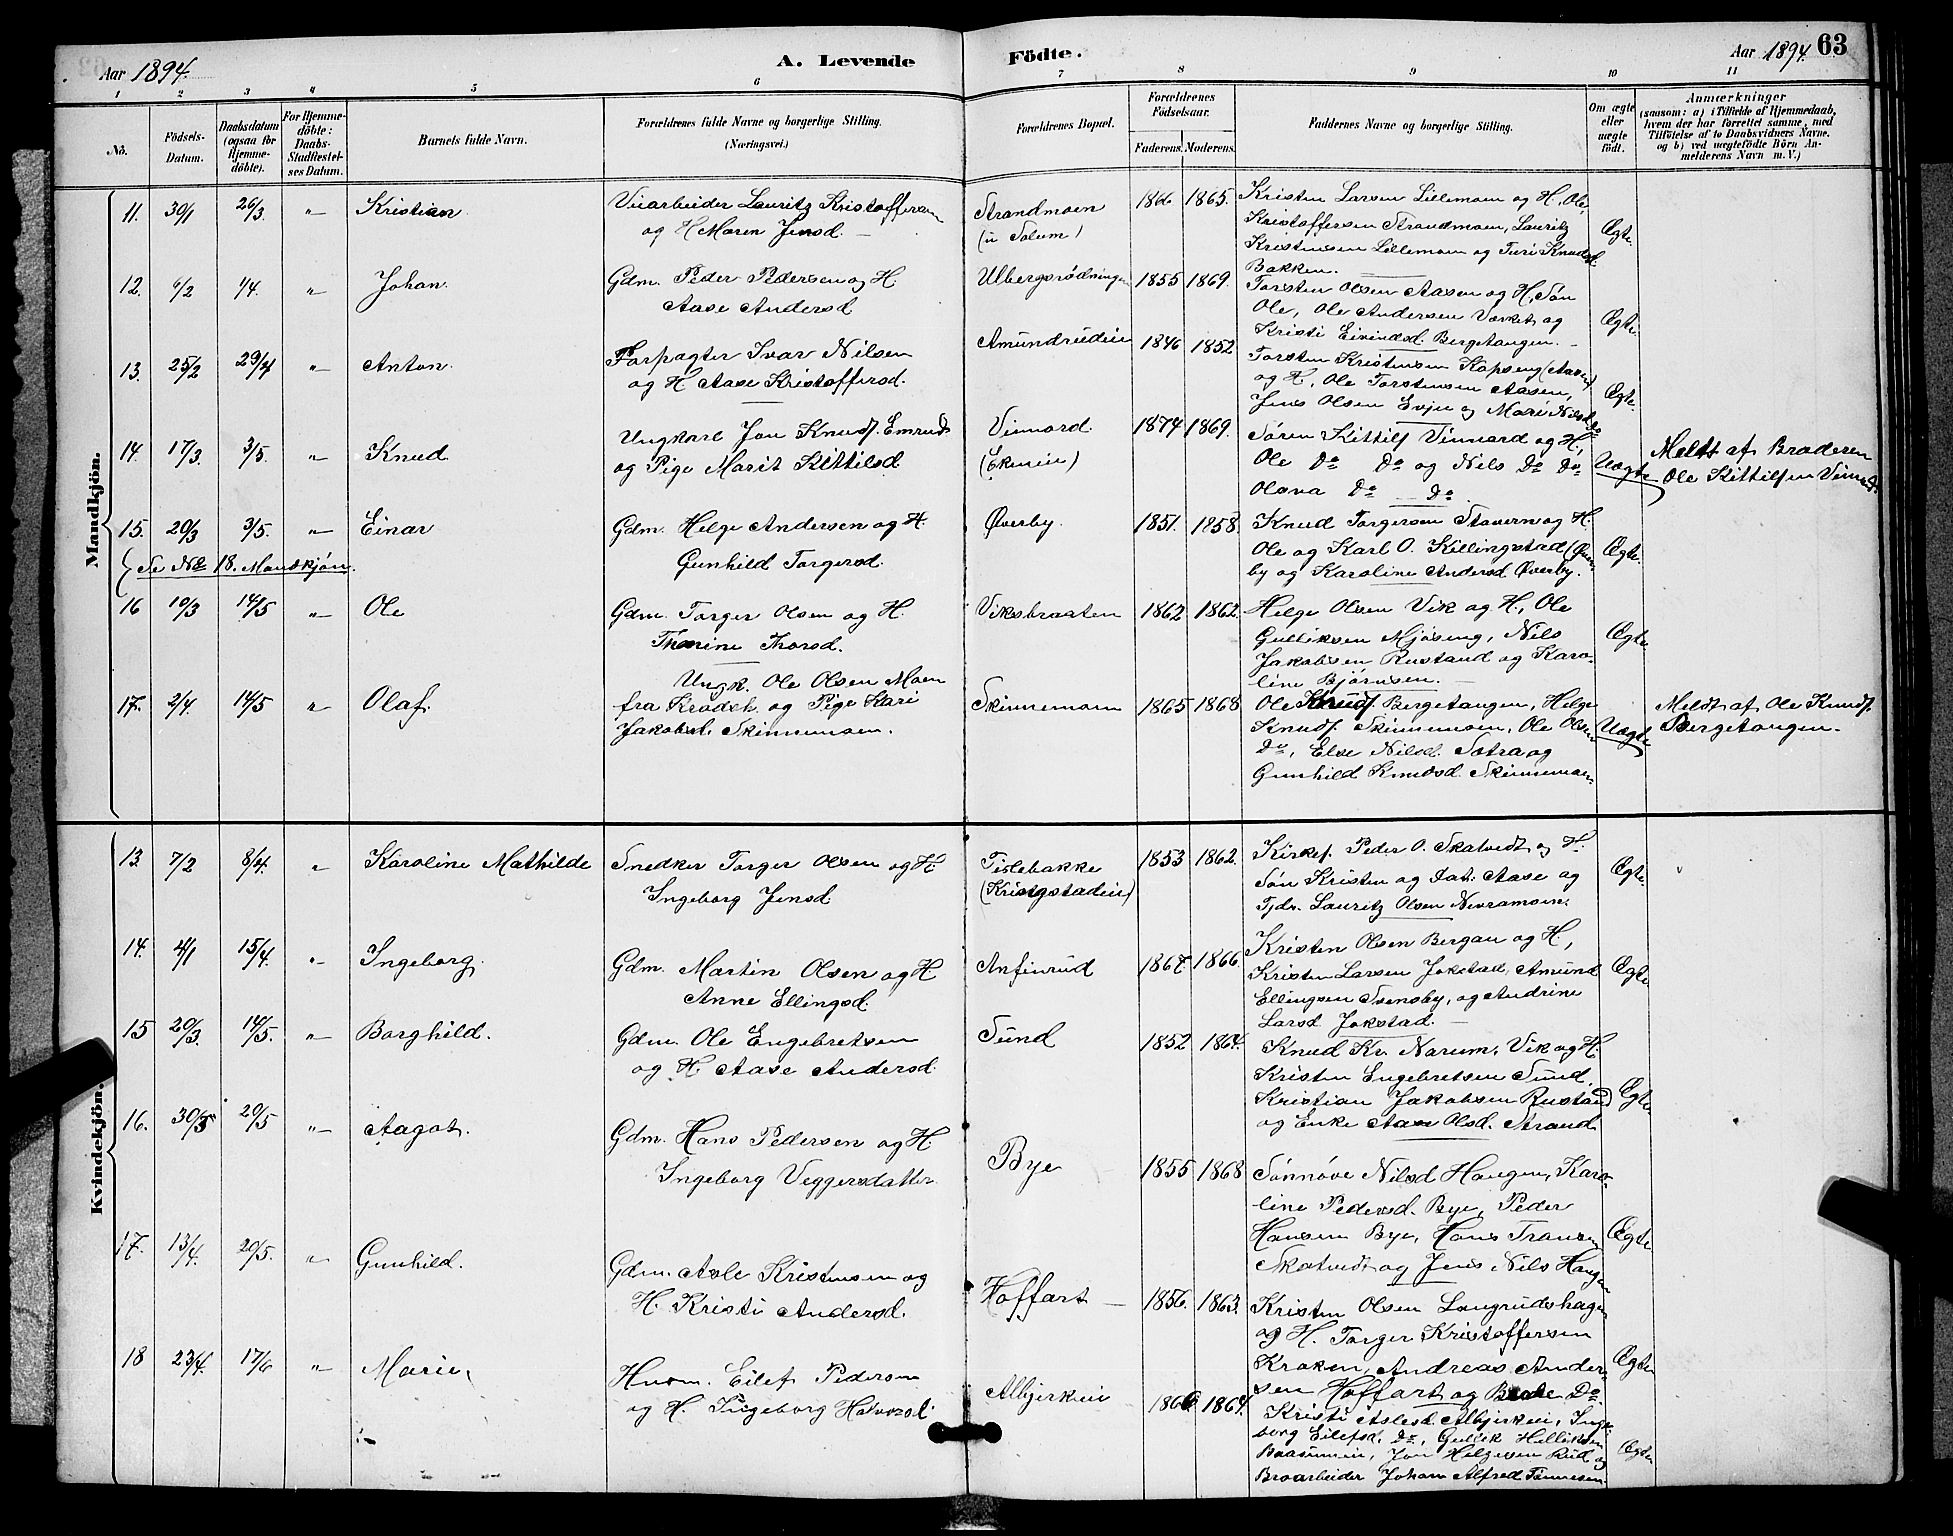 Aar 1894. A. Levende Födte. Aar 1894. 63
1 2 3 4 5 6 7 8 9 10 11
No.
Födsels-Datum.
Daabsdatum (ogsaa for Hjemmedöbte).
For Hjemmedöbte: Daabs-Stadfæstelses Datum.
Barnets fulde Navn.
Forældrenes fulde Navne og borgerlige Stilling. (Næringsvei.)
Forældrenes Bopæl.
Forældrenes Födselsaar.
Faderens. Moderens.
Faddernes Navne og borgerlige Stilling.
Om ægte eller uægte födt.
Anmærkninger
(saasom: a) i Tilfælde af Hjemmedaab, hvem der har forrettet samme, med Tilföielse af to Daabsvidners Navne. og b) ved uægtefödte Börn Anmelderens Navn m. V.)
Mandkjön.
11. 30/1 26/3. " Kristian. Veiarbeider Lauritz Kristoffersen
og H. Maren Jensd. Strandmoen (i Solum) 1866 1865.
Kristen Larsen Lillemoen og H, Ole
Kristoffersen Strandmoen, Lauritz
Kristensen Lillemoen og Turi Knudsd.
Bakken. Ægte.
12. 6/2 1/4. " Johan. Gdm. Peder Pedersen og H.
Aase Andersd. Ulbergsrødningen 1855 1869.
Torsten Olsen Aasen og H, Søn
Ole, Ole Andersen Værket og
Kristi Eivindsd. Bergetangen. Ægte.
13. 25/2 29/4 " Anton. Forpagter Ivar Nilsen
og H Aase Kristoffersd. Amundrudeie 1846 1852
Torsten Kristensen Kopseng (Aasen)
og H, Ole Torstensen Aasen,
Jens Olsen Evju og Mari Nilsd. Do Ægte.
14. 17/3. 3/5. " Knud Ungkarl Jon Knuds. Emrud
og Pige Marit Kittilsd Vinnord. (Ekneie) 1874 1869.
Søren Kittils Vinnard og H,
Ole Do Do og Nils Do Do
Olava Do Do Uægte
Meldt af Broderen
Ole Kittilsen Vinnord.
15. 20/3 3/5. " Einar Gdm. Helge Andersen og H.
Gunhild Torgersd. Øverby. 1851. 1858.
Knud Torgersen Stavern og H.
Ole og Karl O. Killingstad (Øver-
by og Karoline Andersd Øverby. Ægte.
(Se No 18. Mandkjøn.
16 10/3 14/5 " Ole Gdm. Torger Olsen og H.
Thorine Thorsd. Viksbraaten 1862 1862.
Helge Olsen Vik og H., Ole
Gulliksen Mjøseng, Nils
Jakobsen Rustand og Karo-
line Bjørnsen. Ægte
17. 2/4. 14/5 " Olaf. Ungk. Ole Olsen Moen
fra Krødsh. og Pige Kari
Jakobsd. Skinnemoen. Skinnemoen 1865 1868
Ole Knuds. Bergetangen, Helge
Knuds. Skinnemoen, Ole Olsen
Do, Else Nilsd. Sætra og
Gunhild Knudsd. Skinnemoen Uægte
Meldt af Ole Knuds.
Bergetangen.
Kvindekjön.
13. 7/2 8/4. " Karoline Mathilde Snedker Torger Olsen og H.
Ingeborg Jensd. Tislebakke (Kringstadeie) 1853 1862.
Kirkes. Peder O. Skatvedt og H.
Søn Kristen og Dat. Aase og
Tjdr. Lauritz Olsen Nevramoen. Ægte.
14. 4/1 15/4. " Ingeborg. Gdm. Martin Olsen og H
Anne Ellingsd. Anfinrud 1867. 1866
Kristen Olsen Bergan og H,
Kristen Larsen Jokstad, Amund
Ellingsen Svensby, og Andrine
Larsd Jokstad. Ægte.
15 20/3. 14/5. " Borghild. Gdm. Ole Engebretsen
og H. Aase Andersd. Sund 1852 1864.
Knud Kr. Narum, Vik og H.
Kristen Engebretsen Sund,
Kristian Jakobsen Rustand
og Enke Aase Olsd. Strand Ægte.
16. 30/3 20/5 " Aagot. Gdm. Hans Pedersen og H.
Ingeborg Veggersdatter. Bye 1855 1868
Sønnøve Nilsd Haugen, Karo-
line Pedersd. Bye, Peder
Hansen Bye, Hans Transen
Skatvedt og Jens Nils Haugen Ægte
17. 13/4. 20/5. " Gunhild. Gdm. Asle Kristensen og
H. Kristi Andersd. Hoffart 1856. 1863.
Kristen Olsen Langrudshagen
og H. Torger Kristoffersen
Kroken, Andreas Ander-
sen Hoffart og Do Ægte
18 23/4. 17/6 " Marie. Husm. Eilef Pedersen
og H. Ingeborg Halvorsd. Albjerkeie 1866 1864.
Kristi Aslesd. Albjerkeie, Inge-
borg Eilefsd. Do, Gullik Helliksen
Jon Helgesen Rud og
Broarbeider Johan Alfred Tinnesen Ægte